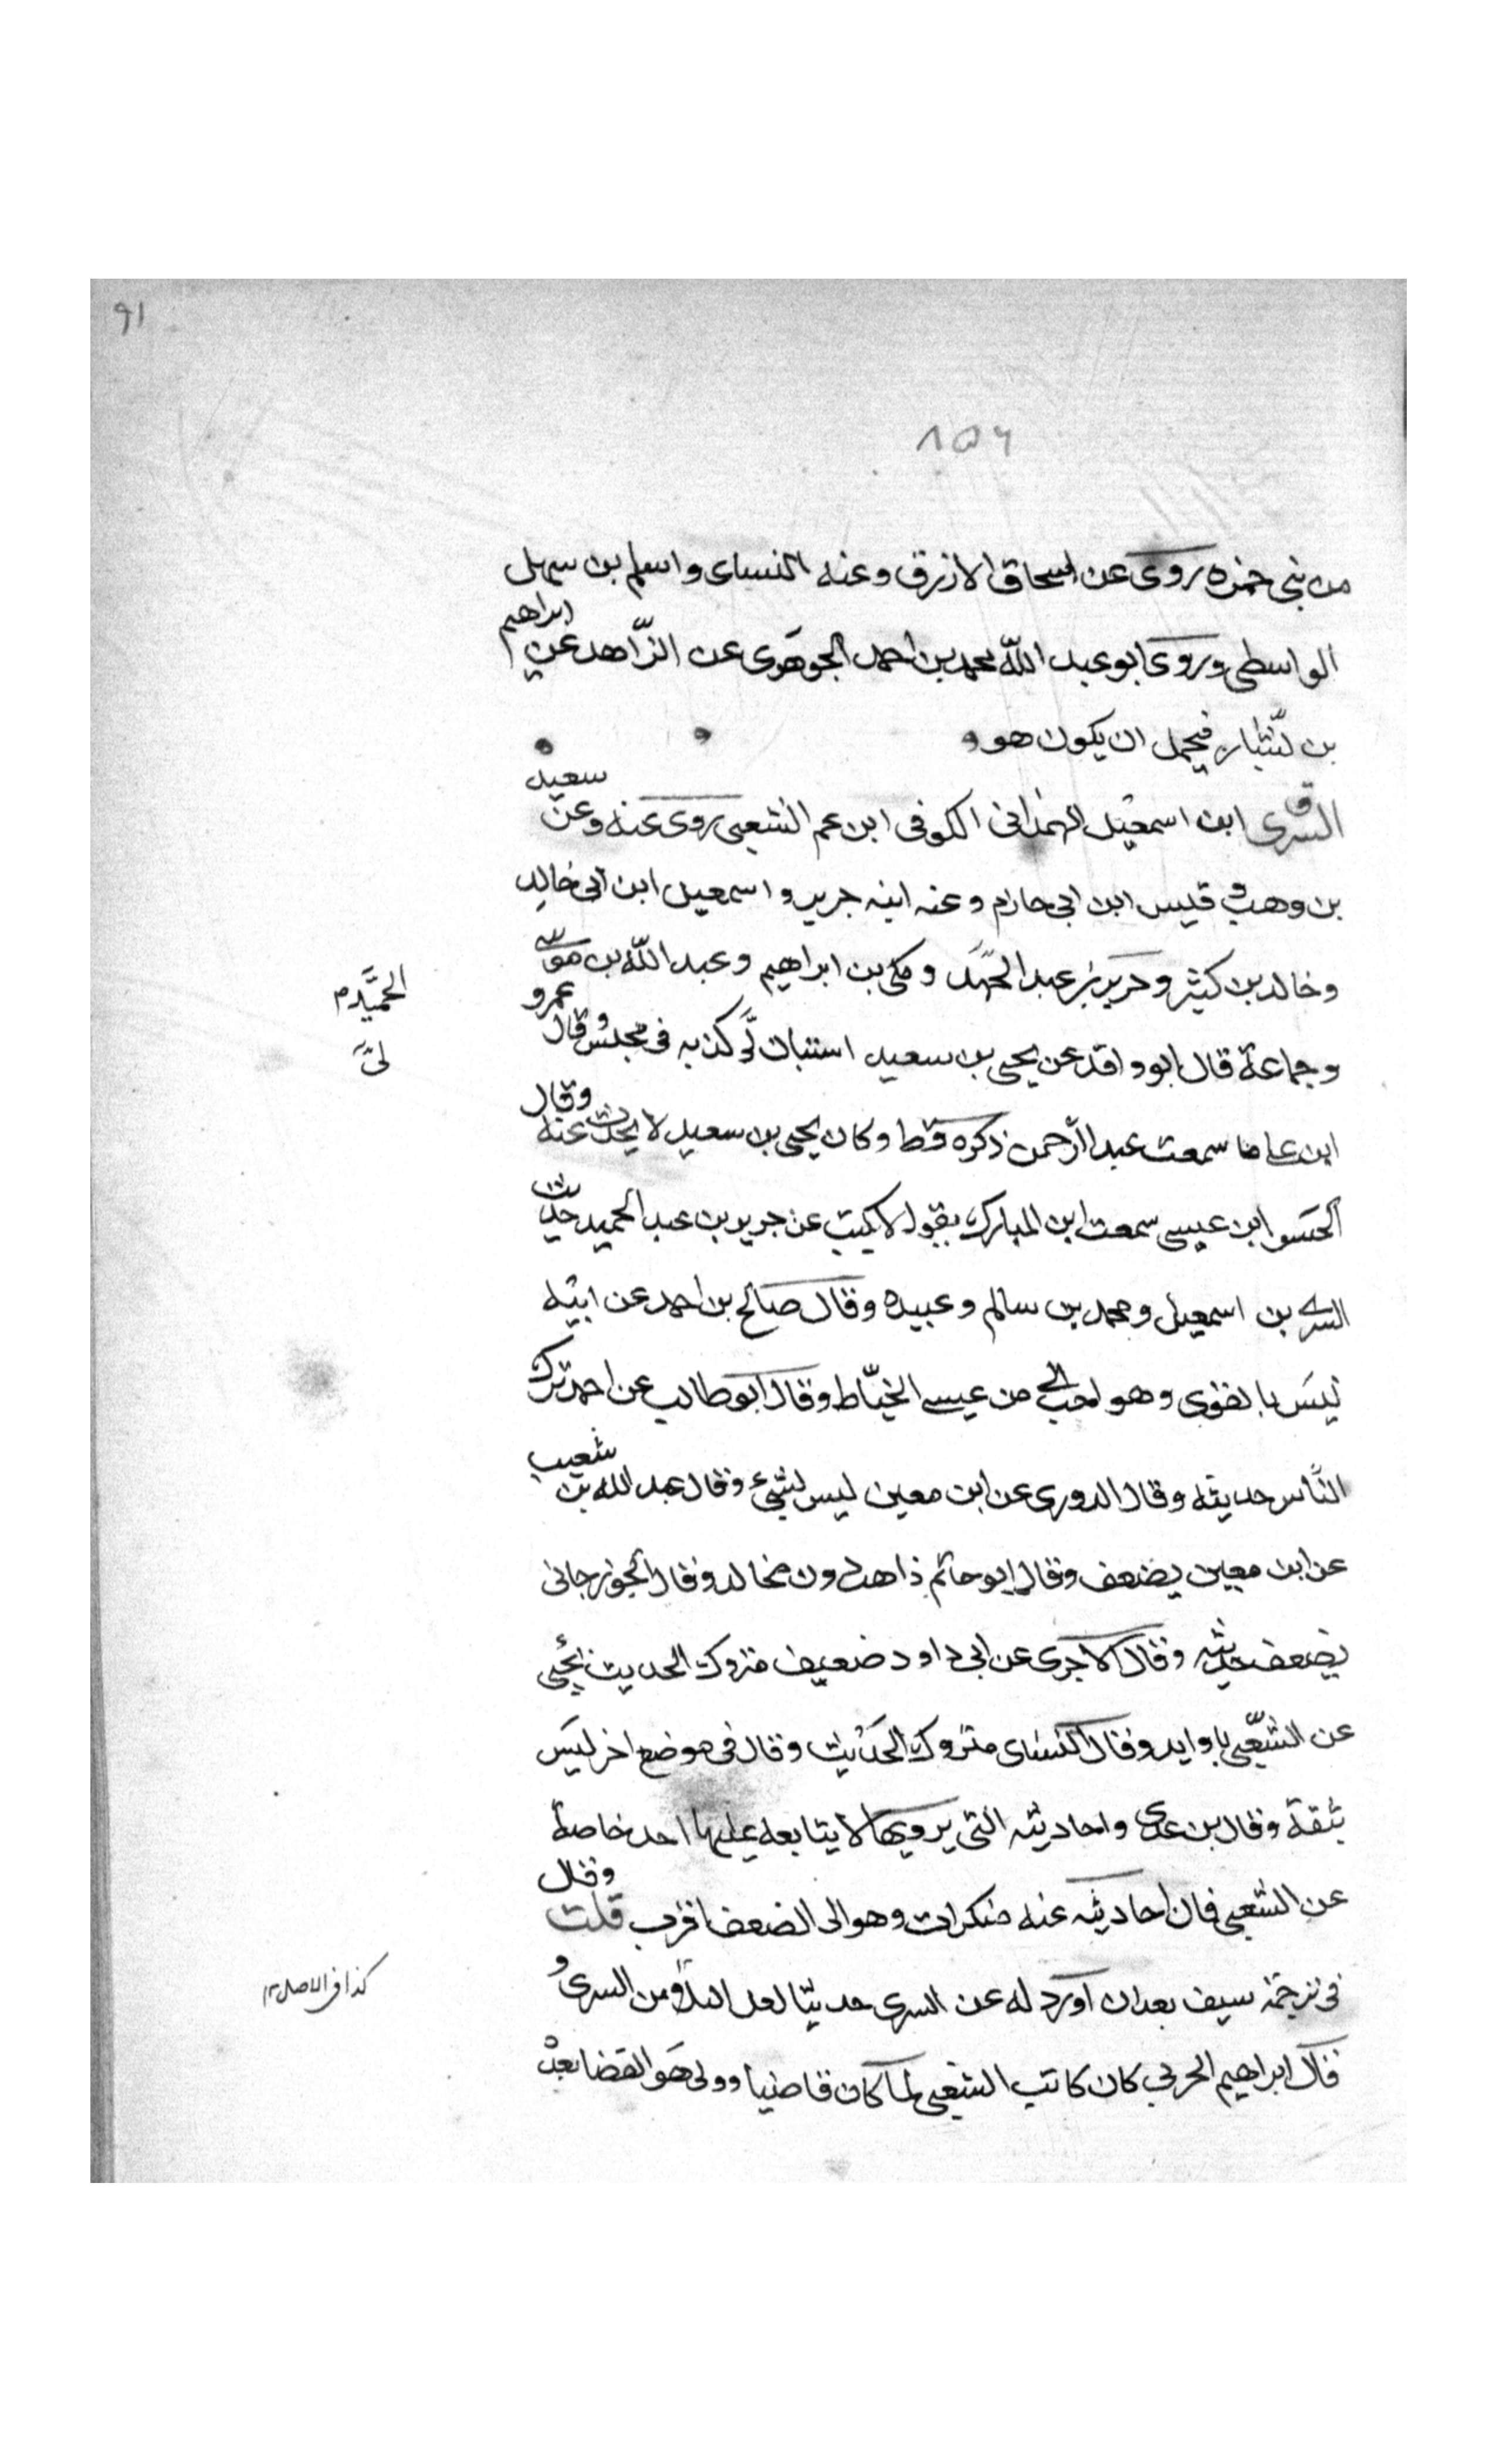 ٩١
٨٥٦
من بني حمزه روى عن اسحاق الازرق وعنه النساى واسلم بن سهل
الواسطي وروى ابو عبد الله محمد بن احمد الجوهرى عن الزاهد عن ابراهيم
بن بشار فيحمل ان يكون هو
السرى ابن اسمعيل الهمدانى الكوفى ابن عم الشعبى روى عنه وعن سعيد
بن وهب قيس ابن ابى حازم وعنه ابنه جرير و اسمعيل ابن ابى خالد
وخالد بن كثير وجرير بن عبد الحمَّد ومكى بن ابراهيم وعبد الله بن موسى
الحميد م
وجماعة قال ابو واقد عن يحيى بن سعيد استبان لَّى كذبه فى مجلس وقال عمرو
لىَّ
ابن على ما سمعت عبد الرحمن ذكره قط وكان يحيى بن سعيد لا يحدث عنه وقال
الحسو ابن عيسى سمعت ابن المبارك يقول لا يكتب عن جرير بن عبد الحميد حديث
السرى بن اسمعيل ومحمد بن سالم وعبيده وقال صالح بن احمد عن ابيه
ليس بالقوى وهو احب الى من عيسى الخياط وقال ابو طالب عن احمد ترك
الناس حديثه وقال الدورى عن ابن معين ليس بشىء وقال عبد الله بن شعيب
عن ابن معين يضعف وقال ابو حاتم ذاهب دون مخالد وقال الجوزجانى
يضعف حديثه وقال الاجرى عن ابى داود ضعيف متروك الحديث يجئ
عن الشعبى باوابد وقال النساى متروك الحديث وقال فى موضع اخر ليس
بثقة وقال بن عدى واحاديثه التى يرويها لا يتابعه عليها احد خاصة
عن الشعبى فان احاديثه عنه منكرات وهو الى الضعف اقرب قلت وقال
فى ترجمة سيف بعد ان اورد له عن السرى حديثا لعل البلاؤ من السرى و
كذا فى الاصل ١٢
قال ابراهيم الحربي كان كاتب الشعبى لما كان قاضيا وولى هو القضا بعد